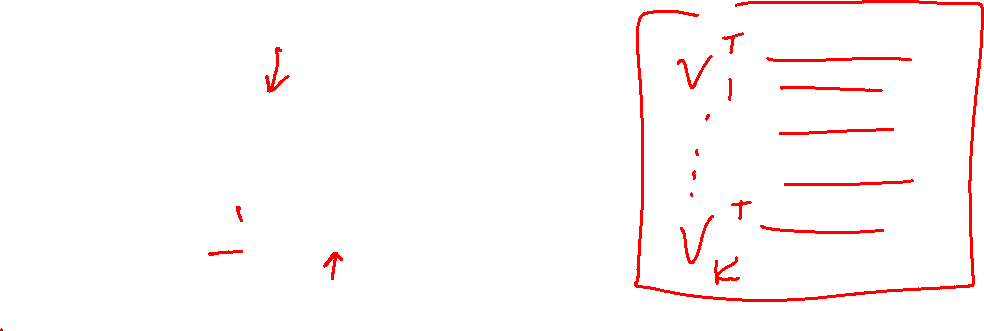 V₁ᵀ
⋮
V_Kᵀ